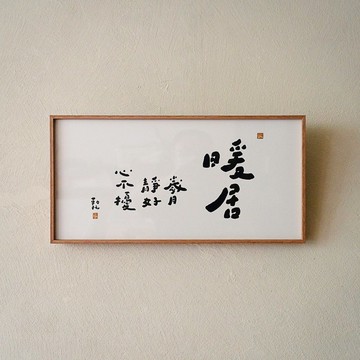 暖居
歲月
靜好
心不擾